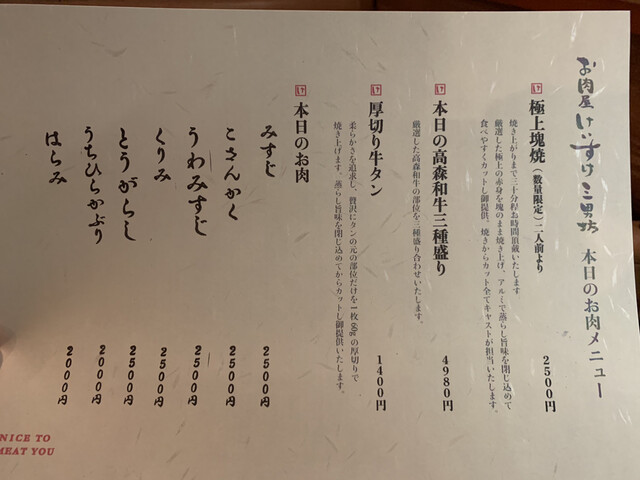 お肉屋 けいすけ 三男坊 本日のお肉メニュー
け 極上塊焼(数量限定)二人前より 2500円
焼き上がりまで三十分程お時間頂戴いたします
厳選した極上の赤身を塊のまま焼き上げ、アルミで蒸らし旨味を閉じ込めて
食べやすくカットし御提供。焼きからカット全てキャストが担当いたします。
け 本日の高森和牛三種盛り 4980円
厳選した高森和牛の部位を三種盛り合わせいたします。
け 厚切り牛タン 1400円
柔らかさを追求し、贅沢にタンの元の部位だけを一枚60gの厚切りで
焼き上げます。蒸らし旨味を閉じ込めてからカットし御提供いたします。
け 本日のお肉
みすじ 2500円
こさんかく 2500円
うわみすじ 2500円
くりみ 2500円
とうがらし 2500円
うちひらかぶり 2000円
はらみ 2000円
NICE TO
MEAT YOU